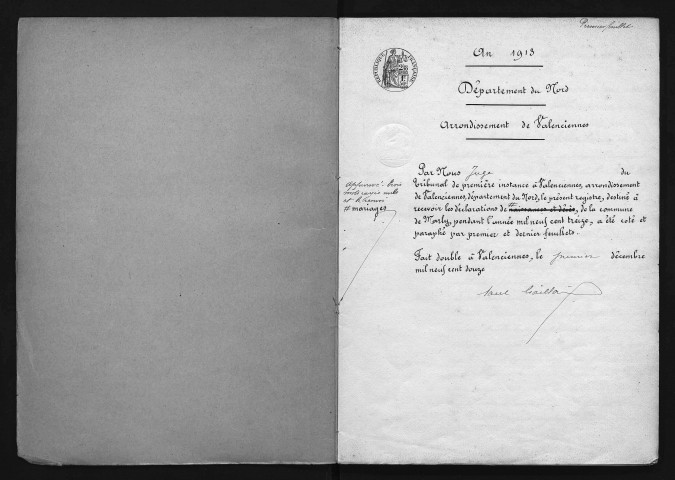 Premier feuillet
An 1913
RÉPUBLIQUE FRANÇAISE
Département du Nord
Arrondissement de Valenciennes
Par Nous Juge du
Tribunal de première instance à Valenciennes, arrondissement
de Valenciennes, département du Nord, le présent registre, destiné à
recevoir les déclarations de naissances et décès, de la commune
de Marly, pendant l'année mil neuf cent treize, a été coté et
paraphé par premier et dernier feuillets.
Approuvé trois
mots rayés nuls
et le renvoi
# mariages
Fait double à Valenciennes, le premier décembre
mil neuf cent douze